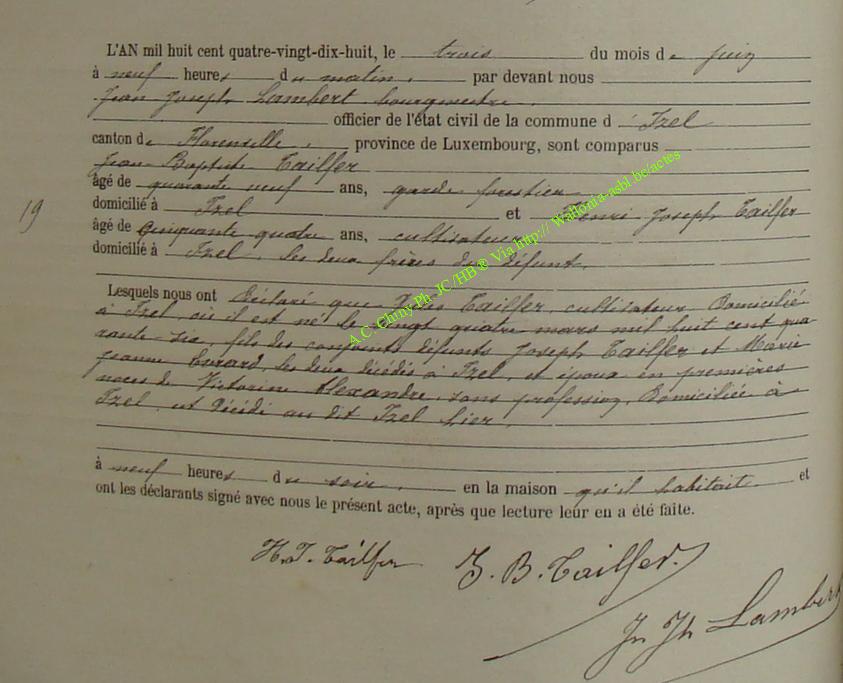 L'AN mil huit cent quatre-vingt-dix-huit, le trois du mois de juin
à neuf heures du matin, par devant nous
Jean Joseph Lambert bourgmestre,
officier de l'état civil de la commune d'Izel
canton de Florenville, province de Luxembourg, sont comparus
Jean Baptiste Tailfer
âgé de quarante neuf ans, garde forestier
domicilié à Izel et Henri Joseph Tailfer
âgé de cinquante quatre ans, cultivateur
domicilié à Izel, les deux frères du défunt.
19
Lesquels nous ont déclaré que Tailfer, cultivateur, domicilié
à Izel, où il est né le vingt quatre mars mil huit cent qua-
rante-six, fils des conjoints défunts Joseph Tailfer et Marie
Jeanne Evrard, les deux décédés à Izel, et époux en premières
noces de Victorine Alexandre, sans profession, domiciliée à
Izel, est décédé au dit Izel hier,
à neuf heures du soir, en la maison qu'il habitait et
ont les déclarants signé avec nous le présent acte, après que lecture leur en a été faite.
H. J. Tailfer J. B. Tailfer.
Jn Jh Lambert
A.C. Chiny Ph. JC /HB ® Via http:// Wallonia-asbl.be/actes